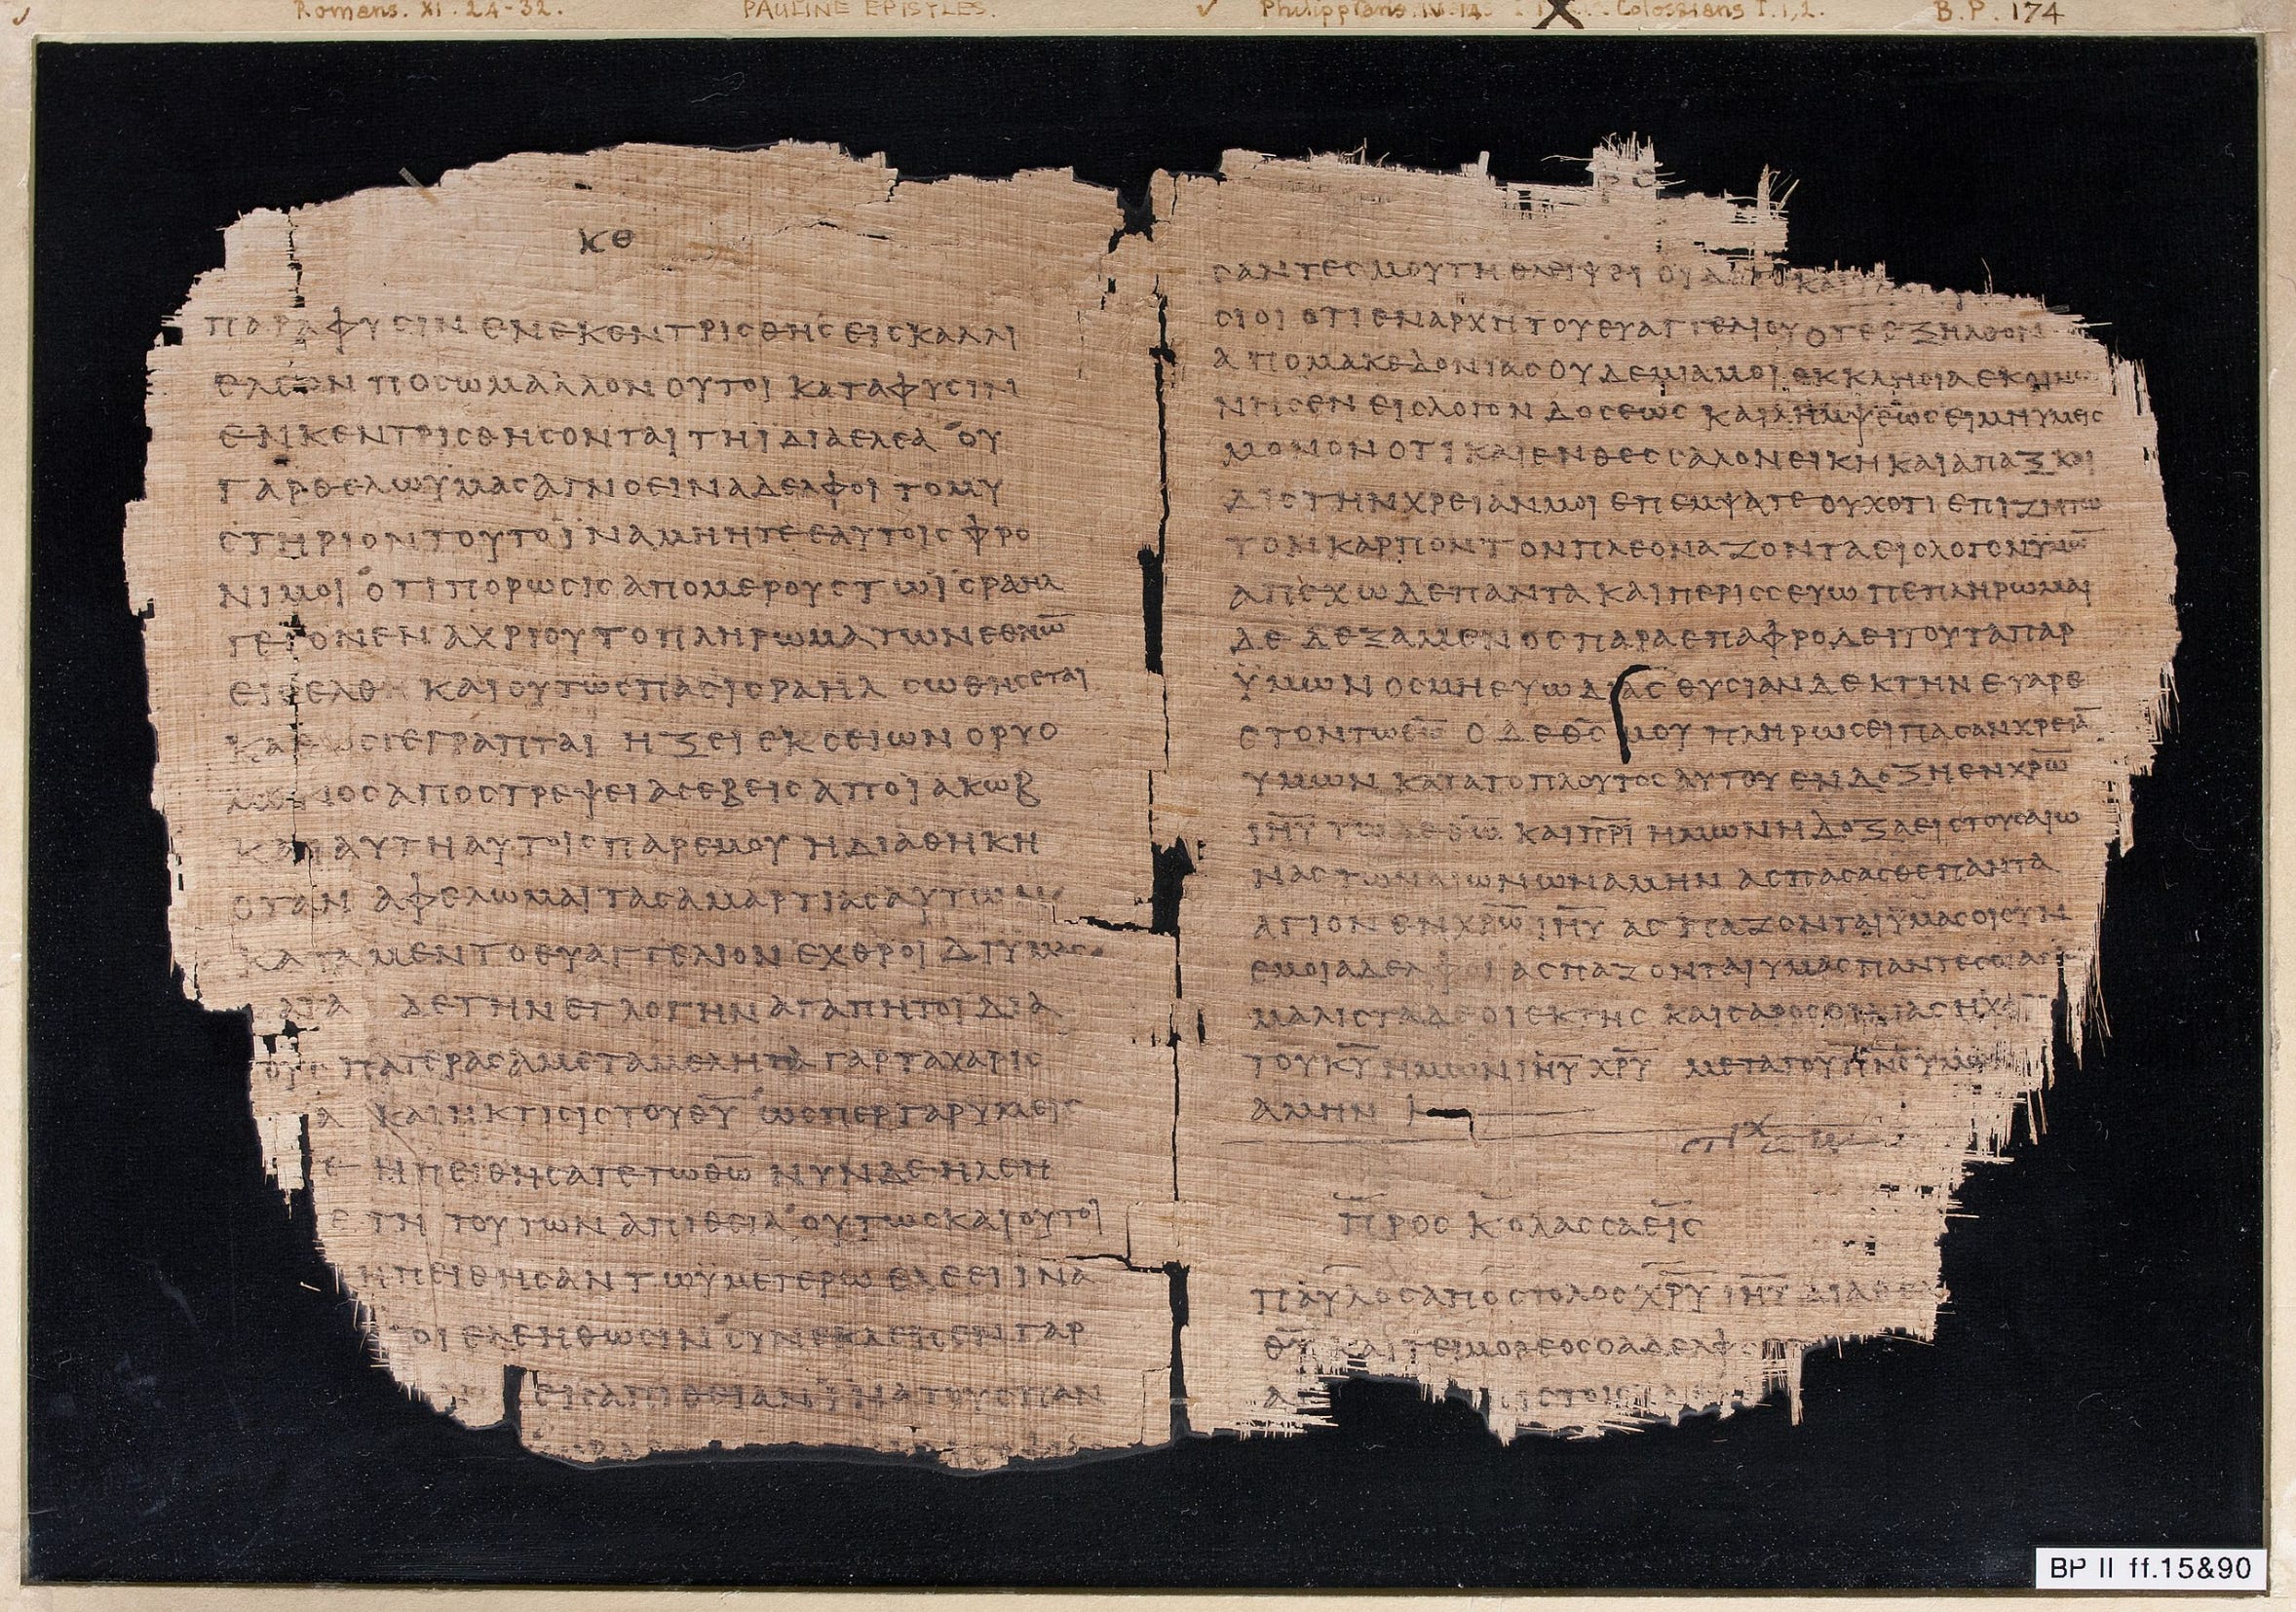 Romans. XI. 24-32.
PAULINE EPISTLES.
Philippians. IV. 14
Colossians I. 1, 2.
B.P. 174
ΚΘ
ΠΑΡΑ ΦΥΣΙΝ ΕΝΕΚΕΝΤΡΙΣΘΗΣ ΕΙΣ ΚΑΛΛΙ
ΕΛΕΟΝ ΠΟΣΩ ΜΑΛΛΟΝ ΟΥΤΟΙ ΚΑΤΑ ΦΥΣΙΝ
ΕΝΚΕΝΤΡΙΣΘΗΣΟΝΤΑΙ ΤΗ ΙΔΙΑ ΕΛΕΑ ΟΥ
ΓΑΡ ΘΕΛΩ ΥΜΑΣ ΑΓΝΟΕΙΝ ΑΔΕΛΦΟΙ ΤΟ ΜΥ
ΣΤΗΡΙΟΝ ΤΟΥΤΟ ΙΝΑ ΜΗ ΗΤΕ ΕΑΥΤΟΙΣ ΦΡΟ
ΝΙΜΟΙ ΟΤΙ ΠΟΡΩΣΙΣ ΑΠΟ ΜΕΡΟΥΣ ΤΩ ΙΣΡΑΗΛ
ΓΕΓΟΝΕΝ ΑΧΡΙ ΟΥ ΤΟ ΠΛΗΡΩΜΑ ΤΩΝ ΕΘΝΩ̅
ΕΙΣΕΛΘ ΚΑΙ ΟΥΤΩΣ ΠΑΣ ΙΣΡΑΗΛ ΣΩΘΗΣΕΤΑΙ
ΚΑΘΩΣ ΓΕΓΡΑΠΤΑΙ ΗΞΕΙ ΕΚ ΣΕΙΩΝ Ο ΡΥΟ
ΜΕΝΟΣ ΑΠΟΣΤΡΕΨΕΙ ΑΣΕΒΕΙΣ ΑΠΟ ΙΑΚΩΒ
ΚΑΙ ΑΥΤΗ ΑΥΤΟΙΣ ΠΑΡ ΕΜΟΥ Η ΔΙΑΘΗΚΗ
ΟΤΑΝ ΑΦΕΛΩΜΑΙ ΤΑΣ ΑΜΑΡΤΙΑΣ ΑΥΤΩΝ
ΚΑΤΑ ΜΕΝ ΤΟ ΕΥΑΓΓΕΛΙΟΝ ΕΧΘΡΟΙ ΔΙ ΥΜΑΣ
ΚΑΤΑ ΔΕ ΤΗΝ ΕΓΛΟΓΗΝ ΑΓΑΠΗΤΟΙ ΔΙΑ
ΤΟΥΣ ΠΑΤΕΡΑΣ ΑΜΕΤΑΜΕΛΗΤΑ ΓΑΡ ΤΑ ΧΑΡΙΣ
Α ΚΑΙ Η ΚΤΙΣΙΣ ΤΟΥ Θ̅Υ̅ ΩΣΠΕΡ ΓΑΡ ΥΜΕΙΣ
Ε ΗΠΕΙΘΗΣΑΤΕ ΤΩ Θ̅Ω̅ ΝΥΝ ΔΕ ΗΛΕΗ
Ε ΤΗ ΤΟΥΤΩΝ ΑΠΙΘΕΙΑ ΟΥΤΩΣ ΚΑΙ ΟΥΤΟΙ
ΗΠΕΙΘΗΣΑΝ ΤΩ ΥΜΕΤΕΡΩ ΕΛΕΕΙ ΙΝΑ
ΤΟΙ ΕΛΕΗΘΩΣΙΝ ΣΥΝΕΚΛΕΙΣΕΝ ΓΑΡ
ΕΙΣ ΑΠΙΘΕΙΑΝ ΙΝΑ ΤΟΥΣ ΠΑΝ
ΣΑΝΤΕΣ ΜΟΥ ΤΗ ΘΛΕΙΨΕΙ ΟΙΔΑΤΕ ΚΑΙ
ΣΙΟΙ ΟΤΙ ΕΝ ΑΡΧΗ ΤΟΥ ΕΥΑΓΓΕΛΙΟΥ ΟΤΕ ΕΞΗΛΘΟΝ
ΑΠΟ ΜΑΚΕΔΟΝΙΑΣ ΟΥΔΕΜΙΑ ΜΟΙ ΕΚΚΛΗΣΙΑ ΕΚΟΙΝΩ
ΝΗΣΕΝ ΕΙΣ ΛΟΓΟΝ ΔΟΣΕΩΣ ΚΑΙ ΛΗΜΨΕΩΣ ΕΙ ΜΗ ΥΜΕΙΣ
ΜΟΝΟΝ ΟΤΙ ΚΑΙ ΕΝ ΘΕΣΣΑΛΟΝΕΙΚΗ ΚΑΙ ΑΠΑΞ ΚΑΙ
ΔΙΣ ΤΗΝ ΧΡΕΙΑΝ ΜΟΙ ΕΠΕΜΨΑΤΕ ΟΥΧ ΟΤΙ ΕΠΙΖΗΤΩ
ΤΟΝ ΚΑΡΠΟΝ ΤΟΝ ΠΛΕΟΝΑΖΟΝΤΑ ΕΙΣ ΛΟΓΟΝ ΥΜΩ̅
ΑΠΕΧΩ ΔΕ ΠΑΝΤΑ ΚΑΙ ΠΕΡΙΣΣΕΥΩ ΠΕΠΛΗΡΩΜΑΙ
ΔΕ ΔΕΞΑΜΕΝΟΣ ΠΑΡΑ ΕΠΑΦΡΟΔΕΙΤΟΥ ΤΑ ΠΑΡ
ΥΜΩΝ ΟΣΜΗ ΕΥΩΔΙΑΣ ΘΥΣΙΑΝ ΔΕΚΤΗΝ ΕΥΑΡΕ
ΣΤΟΝ ΤΩ Θ̅Ω̅ Ο ΔΕ Θ̅Σ̅ ΜΟΥ ΠΛΗΡΩΣΕΙ ΠΑΣΑΝ ΧΡΕΙΑ̅
ΥΜΩΝ ΚΑΤΑ ΤΟ ΠΛΟΥΤΟΣ ΑΥΤΟΥ ΕΝ ΔΟΞΗ ΕΝ Χ̅Ρ̅Ω̅
Ι̅Η̅Υ̅ ΤΩ ΔΕ Θ̅Ω̅ ΚΑΙ Π̅Ρ̅Ι̅ ΗΜΩΝ Η ΔΟΞΑ ΕΙΣ ΤΟΥΣ ΑΙΩ
ΝΑΣ ΤΩΝ ΑΙΩΝΩΝ ΑΜΗΝ ΑΣΠΑΣΑΣΘΕ ΠΑΝΤΑ
ΑΓΙΟΝ ΕΝ Χ̅Ρ̅Ω̅ Ι̅Η̅Υ̅ ΑΣΠΑΖΟΝΤΑΙ ΥΜΑΣ ΟΙ ΣΥΝ
ΕΜΟΙ ΑΔΕΛΦΟΙ ΑΣΠΑΖΟΝΤΑΙ ΥΜΑΣ ΠΑΝΤΕΣ ΟΙ ΑΓΙ
ΜΑΛΙΣΤΑ ΔΕ ΟΙ ΕΚ ΤΗΣ ΚΑΙΣΑΡΟΣ ΟΙΚΙΑΣ Η ΧΑΡΙΣ
ΤΟΥ Κ̅Υ̅ ΗΜΩΝ Ι̅Η̅Υ̅ Χ̅Ρ̅Υ̅ ΜΕΤΑ ΤΟΥ Π̅Ν̅Σ̅ ΥΜΩΝ
ΑΜΗΝ
ΣΤΙΧ
ΠΡΟΣ ΚΟΛΑΣΣΑΕΙΣ
ΠΑΥΛΟΣ ΑΠΟΣΤΟΛΟΣ Χ̅Ρ̅Υ̅ Ι̅Η̅Υ̅ ΔΙΑ ΘΕΛ
Θ̅Υ̅ ΚΑΙ ΤΕΙΜΟΘΕΟΣ Ο ΑΔΕΛΦ
Α ΙΣΤΟΙΣ
BP II ff.15&90